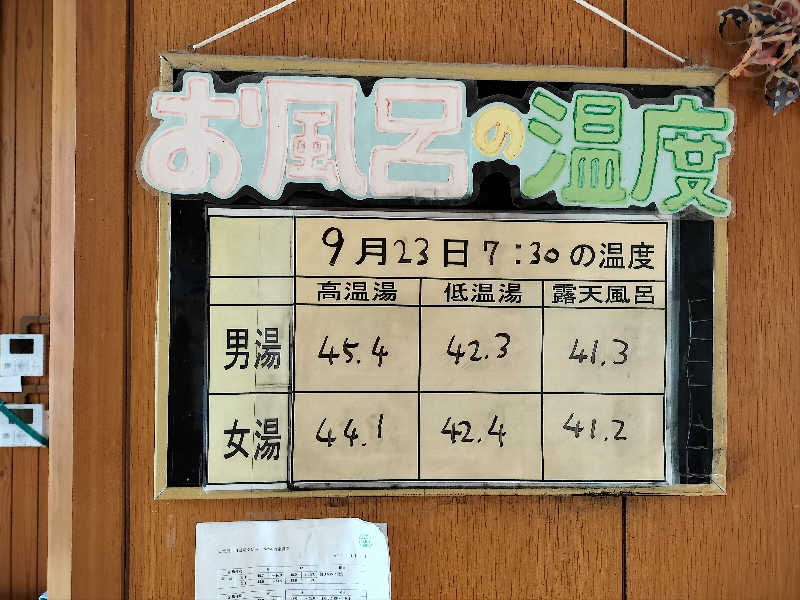 お風呂の温度
9月23日 7:30の温度
高温湯 低温湯 露天風呂
男湯 45.4 42.3 41.3
女湯 44.1 42.4 41.2